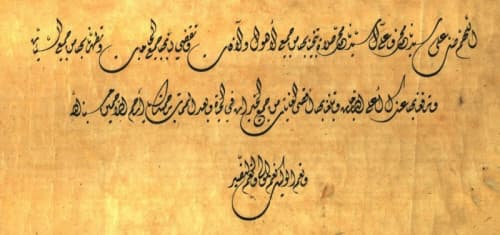 اللهم صل على سيدنا محمد وعلى آل سيدنا محمد صلاة تنجينا بها من جميع الأهوال والآفات وتقضي لنا بها جميع الحاجات وتطهرنا بها من جميع السيئات
وترفعنا بها عندك أعلى الدرجات وتبلغنا بها أقصى الغايات من جميع الخيرات في الحياة وبعد الممات يا أرحم الراحمين حسبنا الله
ونعم الوكيل نعم المولى ونعم النصير